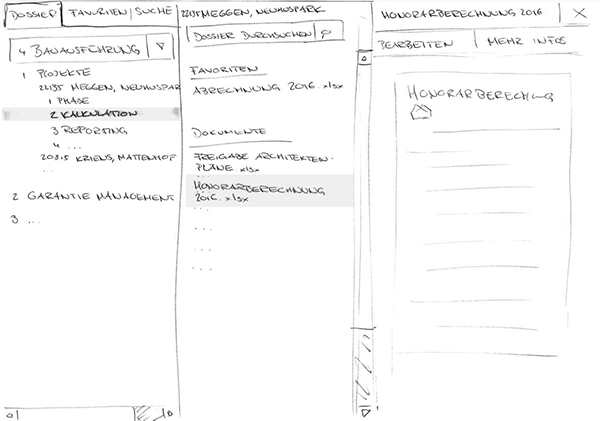 DOSSIER
FAVORITEN
SUCHE
4 BAUAUSFÜHRUNG
1 PROJEKTE
22135 MEGGEN, NEUHUSPAR
1 PHASE
2 KALKULATION
3 REPORTING
4 ...
20815 KRIENS, MATTENHOF
...
2 GARANTIE MANAGEMENT
3 ...
22135 MEGGEN, NEUHUSPARK
DOSSIER DURCHSUCHEN
FAVORITEN
ABRECHNUNG 2016.xlsx
DOKUMENTE
FREIGABE ARCHITEKTEN-
PLÄNE.xlsx
HONORARBERECHNUNG
2016.xlsx
...
...
...
...
HONORARBERECHNUNG 2016
BEARBEITEN
MEHR INFOS
HONORARBERECHNG